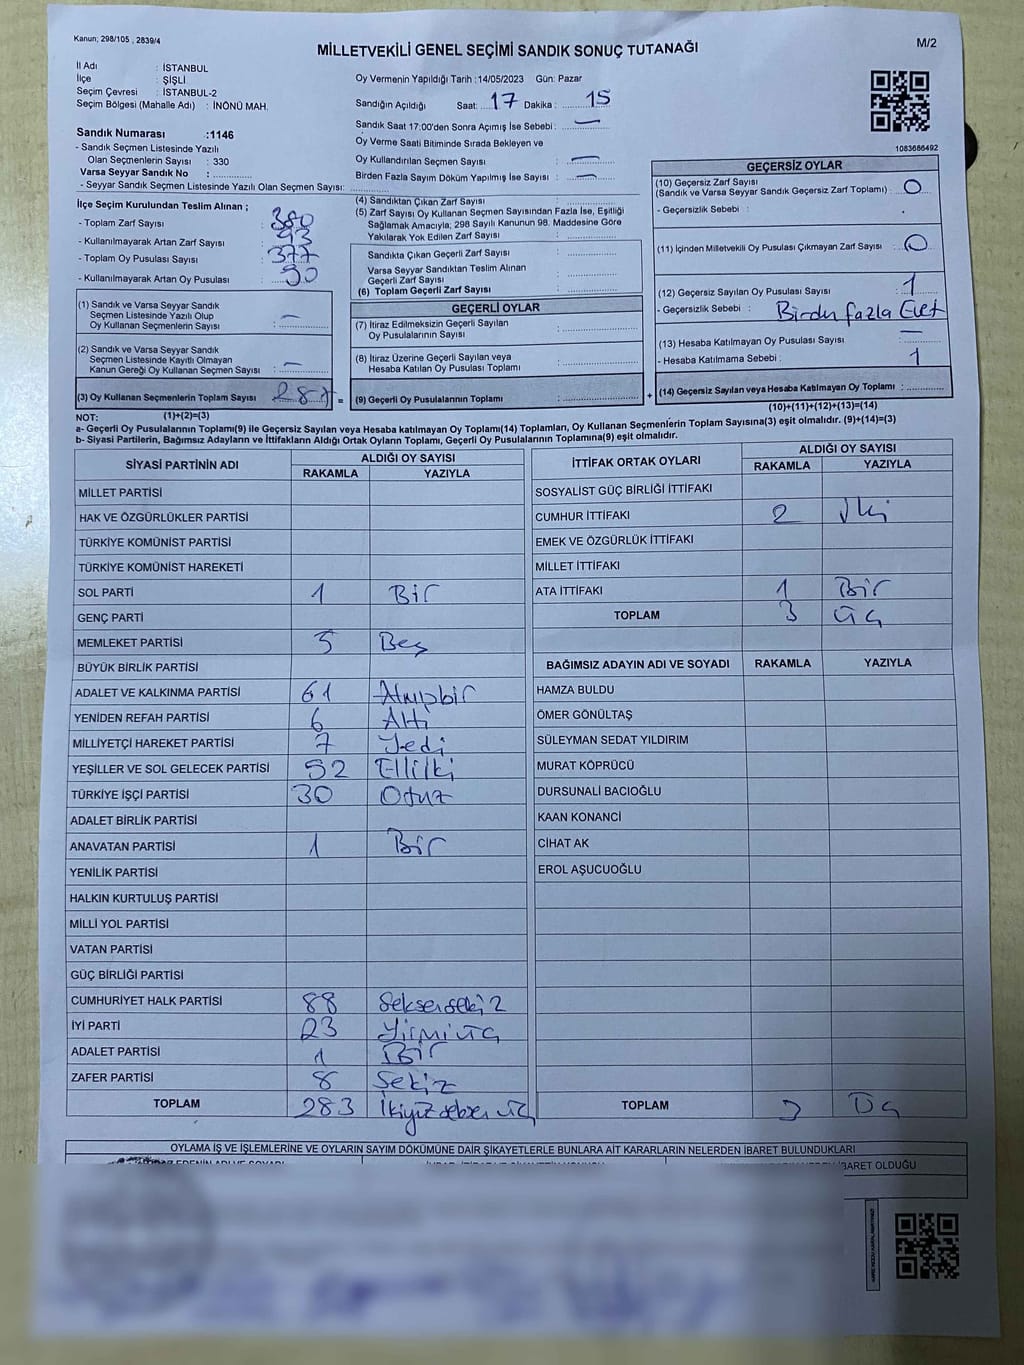 Kanun; 298/105 , 2839/4
MİLLETVEKİLİ GENEL SEÇİMİ SANDIK SONUÇ TUTANAĞI
M/2
İl Adı : İSTANBUL
İlçe : ŞİŞLİ
Seçim Çevresi : İSTANBUL-2
Seçim Bölgesi (Mahalle Adı) : İNÖNÜ MAH.
Sandık Numarası :1146
- Sandık Seçmen Listesinde Yazılı
Olan Seçmenlerin Sayısı : 330
Varsa Seyyar Sandık No :
- Seyyar Sandık Seçmen Listesinde Yazılı Olan Seçmen Sayısı:
Oy Vermenin Yapıldığı Tarih :14/05/2023 Gün: Pazar
Sandığın Açıldığı Saat: 17 Dakika : 15
Sandık Saat 17:00'den Sonra Açımış İse Sebebi : —
Oy Verme Saati Bitiminde Sırada Bekleyen ve
Oy Kullandırılan Seçmen Sayısı : —
Birden Fazla Sayım Döküm Yapılmış İse Sayısı : —
1083686492
İlçe Seçim Kurulundan Teslim Alınan ;
- Toplam Zarf Sayısı : 380
- Kullanılmayarak Artan Zarf Sayısı : 93
- Toplam Oy Pusulası Sayısı : 377
- Kullanılmayarak Artan Oy Pusulası : 90
(1) Sandık ve Varsa Seyyar Sandık
Seçmen Listesinde Yazılı Olup
Oy Kullanan Seçmenlerin Sayısı : —
(2) Sandık ve Varsa Seyyar Sandık
Seçmen Listesinde Kayıtlı Olmayan
Kanun Gereği Oy Kullanan Seçmen Sayısı : —
(3) Oy Kullanan Seçmenlerin Toplam Sayısı : 287
=
(4) Sandıktan Çıkan Zarf Sayısı :
(5) Zarf Sayısı Oy Kullanan Seçmen Sayısından Fazla İse, Eşitliği
Sağlamak Amacıyla; 298 Sayılı Kanunun 98. Maddesine Göre
Yakılarak Yok Edilen Zarf Sayısı :
Sandıkta Çıkan Geçerli Zarf Sayısı :
Varsa Seyyar Sandıktan Teslim Alınan
Geçerli Zarf Sayısı :
(6) Toplam Geçerli Zarf Sayısı :
GEÇERLİ OYLAR
(7) İtiraz Edilmeksizin Geçerli Sayılan
Oy Pusulalarının Sayısı :
(8) İtiraz Üzerine Geçerli Sayılan veya
Hesaba Katılan Oy Pusulası Toplamı :
(9) Geçerli Oy Pusulalarının Toplamı :
+
GEÇERSİZ OYLAR
(10) Geçersiz Zarf Sayısı
(Sandık ve Varsa Seyyar Sandık Geçersiz Zarf Toplamı) : 0
- Geçersizlik Sebebi :
(11) İçinden Milletvekili Oy Pusulası Çıkmayan Zarf Sayısı : 0
(12) Geçersiz Sayılan Oy Pusulası Sayısı : 1
- Geçersizlik Sebebi : Birden fazla Evet
(13) Hesaba Katılmayan Oy Pusulası Sayısı : —
- Hesaba Katılmama Sebebi : 1
(14) Geçersiz Sayılan veya Hesaba Katılmayan Oy Toplamı :
(1)+(2)=(3)
(10)+(11)+(12)+(13)=(14)
NOT:
a- Geçerli Oy Pusulasının Toplamı(9) ile Geçersiz Sayılan veya Hesaba katılmayan Oy Toplamı(14) Toplamları, Oy Kullanan Seçmenlerin Toplam Sayısına(3) eşit olmalıdır. (9)+(14)=(3)
b- Siyasi Partilerin, Bağımsız Adayların ve İttifakların Aldığı Ortak Oyların Toplamı, Geçerli Oy Pusulasının Toplamına(9) eşit olmalıdır.
SİYASİ PARTİNİN ADI ALDIĞI OY SAYISI
RAKAMLA YAZIYLA
MİLLET PARTİSİ
HAK VE ÖZGÜRLÜKLER PARTİSİ
TÜRKİYE KOMÜNİST PARTİSİ
TÜRKİYE KOMÜNİST HAREKETİ
SOL PARTİ 1 Bir
GENÇ PARTİ
MEMLEKET PARTİSİ 5 Beş
BÜYÜK BİRLİK PARTİSİ
ADALET VE KALKINMA PARTİSİ 61 Atmışbir
YENİDEN REFAH PARTİSİ 6 Altı
MİLLİYETÇİ HAREKET PARTİSİ 7 Yedi
YEŞİLLER VE SOL GELECEK PARTİSİ 52 Elliiki
TÜRKİYE İŞÇİ PARTİSİ 30 Otuz
ADALET BİRLİK PARTİSİ
ANAVATAN PARTİSİ 1 Bir
YENİLİK PARTİSİ
HALKIN KURTULUŞ PARTİSİ
MİLLİ YOL PARTİSİ
VATAN PARTİSİ
GÜÇ BİRLİĞİ PARTİSİ
CUMHURİYET HALK PARTİSİ 88 Seksensekiz
İYİ PARTİ 23 Yirmiüç
ADALET PARTİSİ 1 Bir
ZAFER PARTİSİ 8 Sekiz
TOPLAM 283 İkiyüzseksenüç
İTTİFAK ORTAK OYLARI ALDIĞI OY SAYISI
RAKAMLA YAZIYLA
SOSYALİST GÜÇ BİRLİĞİ İTTİFAKI
CUMHUR İTTİFAKI 2 İki
EMEK VE ÖZGÜRLÜK İTTİFAKI
MİLLET İTTİFAKI
ATA İTTİFAKI 1 Bir
TOPLAM 3 Üç
BAĞIMSIZ ADAYIN ADI VE SOYADI RAKAMLA YAZIYLA
HAMZA BULDU
ÖMER GÖNÜLTAŞ
SÜLEYMAN SEDAT YILDIRIM
MURAT KÖPRÜCÜ
DURSUNALİ BACIOĞLU
KAAN KONANCİ
CİHAT AK
EROL AŞUCUOĞLU
TOPLAM 3 Üç
OYLAMA İŞ VE İŞLEMLERİNE VE OYLARIN SAYIM DÖKÜMÜNE DAİR ŞİKAYETLERLE BUNLARA AİT KARARLARIN NELERDEN İBARET BULUNDUKLARI